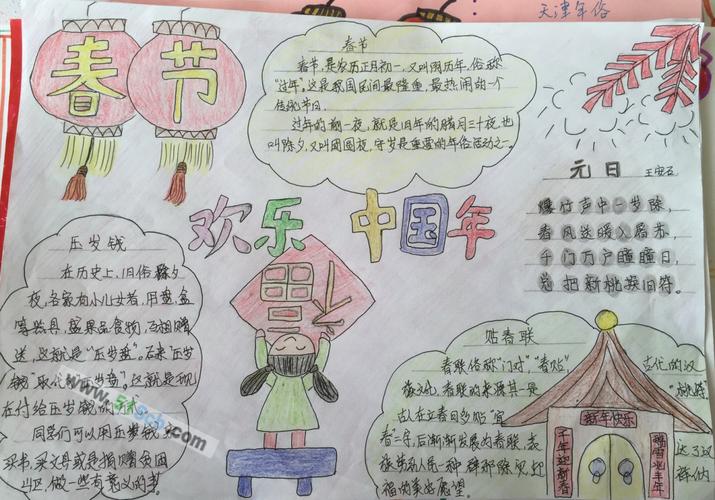 天津年俗
春节
春节
春节,是农历正月初一,又叫阴历年,俗称
"过年"。这是我国民间最隆重、最热闹的一个
传统节日。
过年的前一夜,就是旧年的腊月三十夜,也
叫除夕,又叫团圆夜,守岁是重要的年俗活动之一。
元日 王安石
爆竹声中一岁除,
春风送暖入屠苏,
千门万户曈曈日,
总把新桃换旧符。
欢乐 中国年
压岁钱
在历史上,旧俗除夕
夜,各家的小儿女者,用
等器具,盛果品食物,互相赠
送,这就是"压岁盘"。后来"压岁
钱"取代"压岁盘"。这就是现
在付给压岁钱
同学们可以用压岁钱
买书,买文具或是捐赠贫困
山区,做一些有意义的事。
贴春联
春联俗称"门对","春贴",古代的汉
族文化,春联的来源其一是
古人在立春日多贴"宜
春"二字,后渐渐发展为春联,表
达了汉
福的美好愿望。
新年快乐
千年迎新春
瑞雪兆丰年